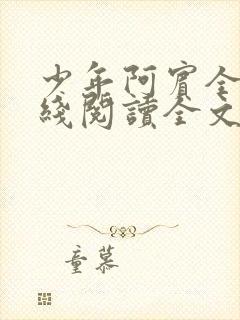 少年阿賓全
綫閱讀全文
童慕